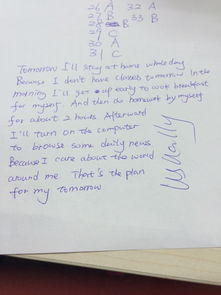 26 A 32 A
27 B 33 B
28 B
29 C
30 A
31 C
Tomorrow I'll stay at home whole day
Because I don't have classes tomorrow In the
morning I'll get up early to cook breakfast
for myself. And then do homework by myself
for about 2 hours Afterward
I'll turn on the computer
to browse some daily news
Because I care about the world
around me That's the plan
for my tomorrow
Usually